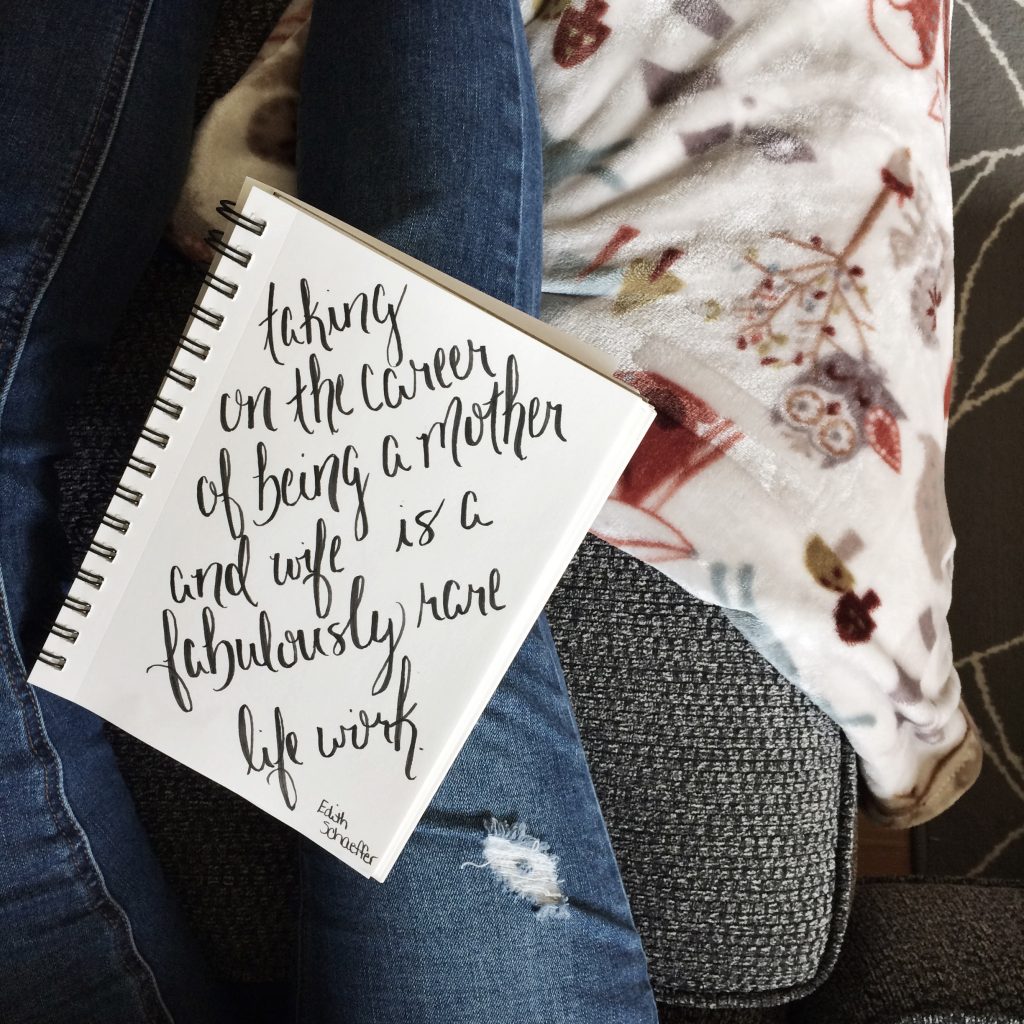 taking
on the career
of being a mother
and wife is a
fabulously rare
life work.
Edith
Schaeffer